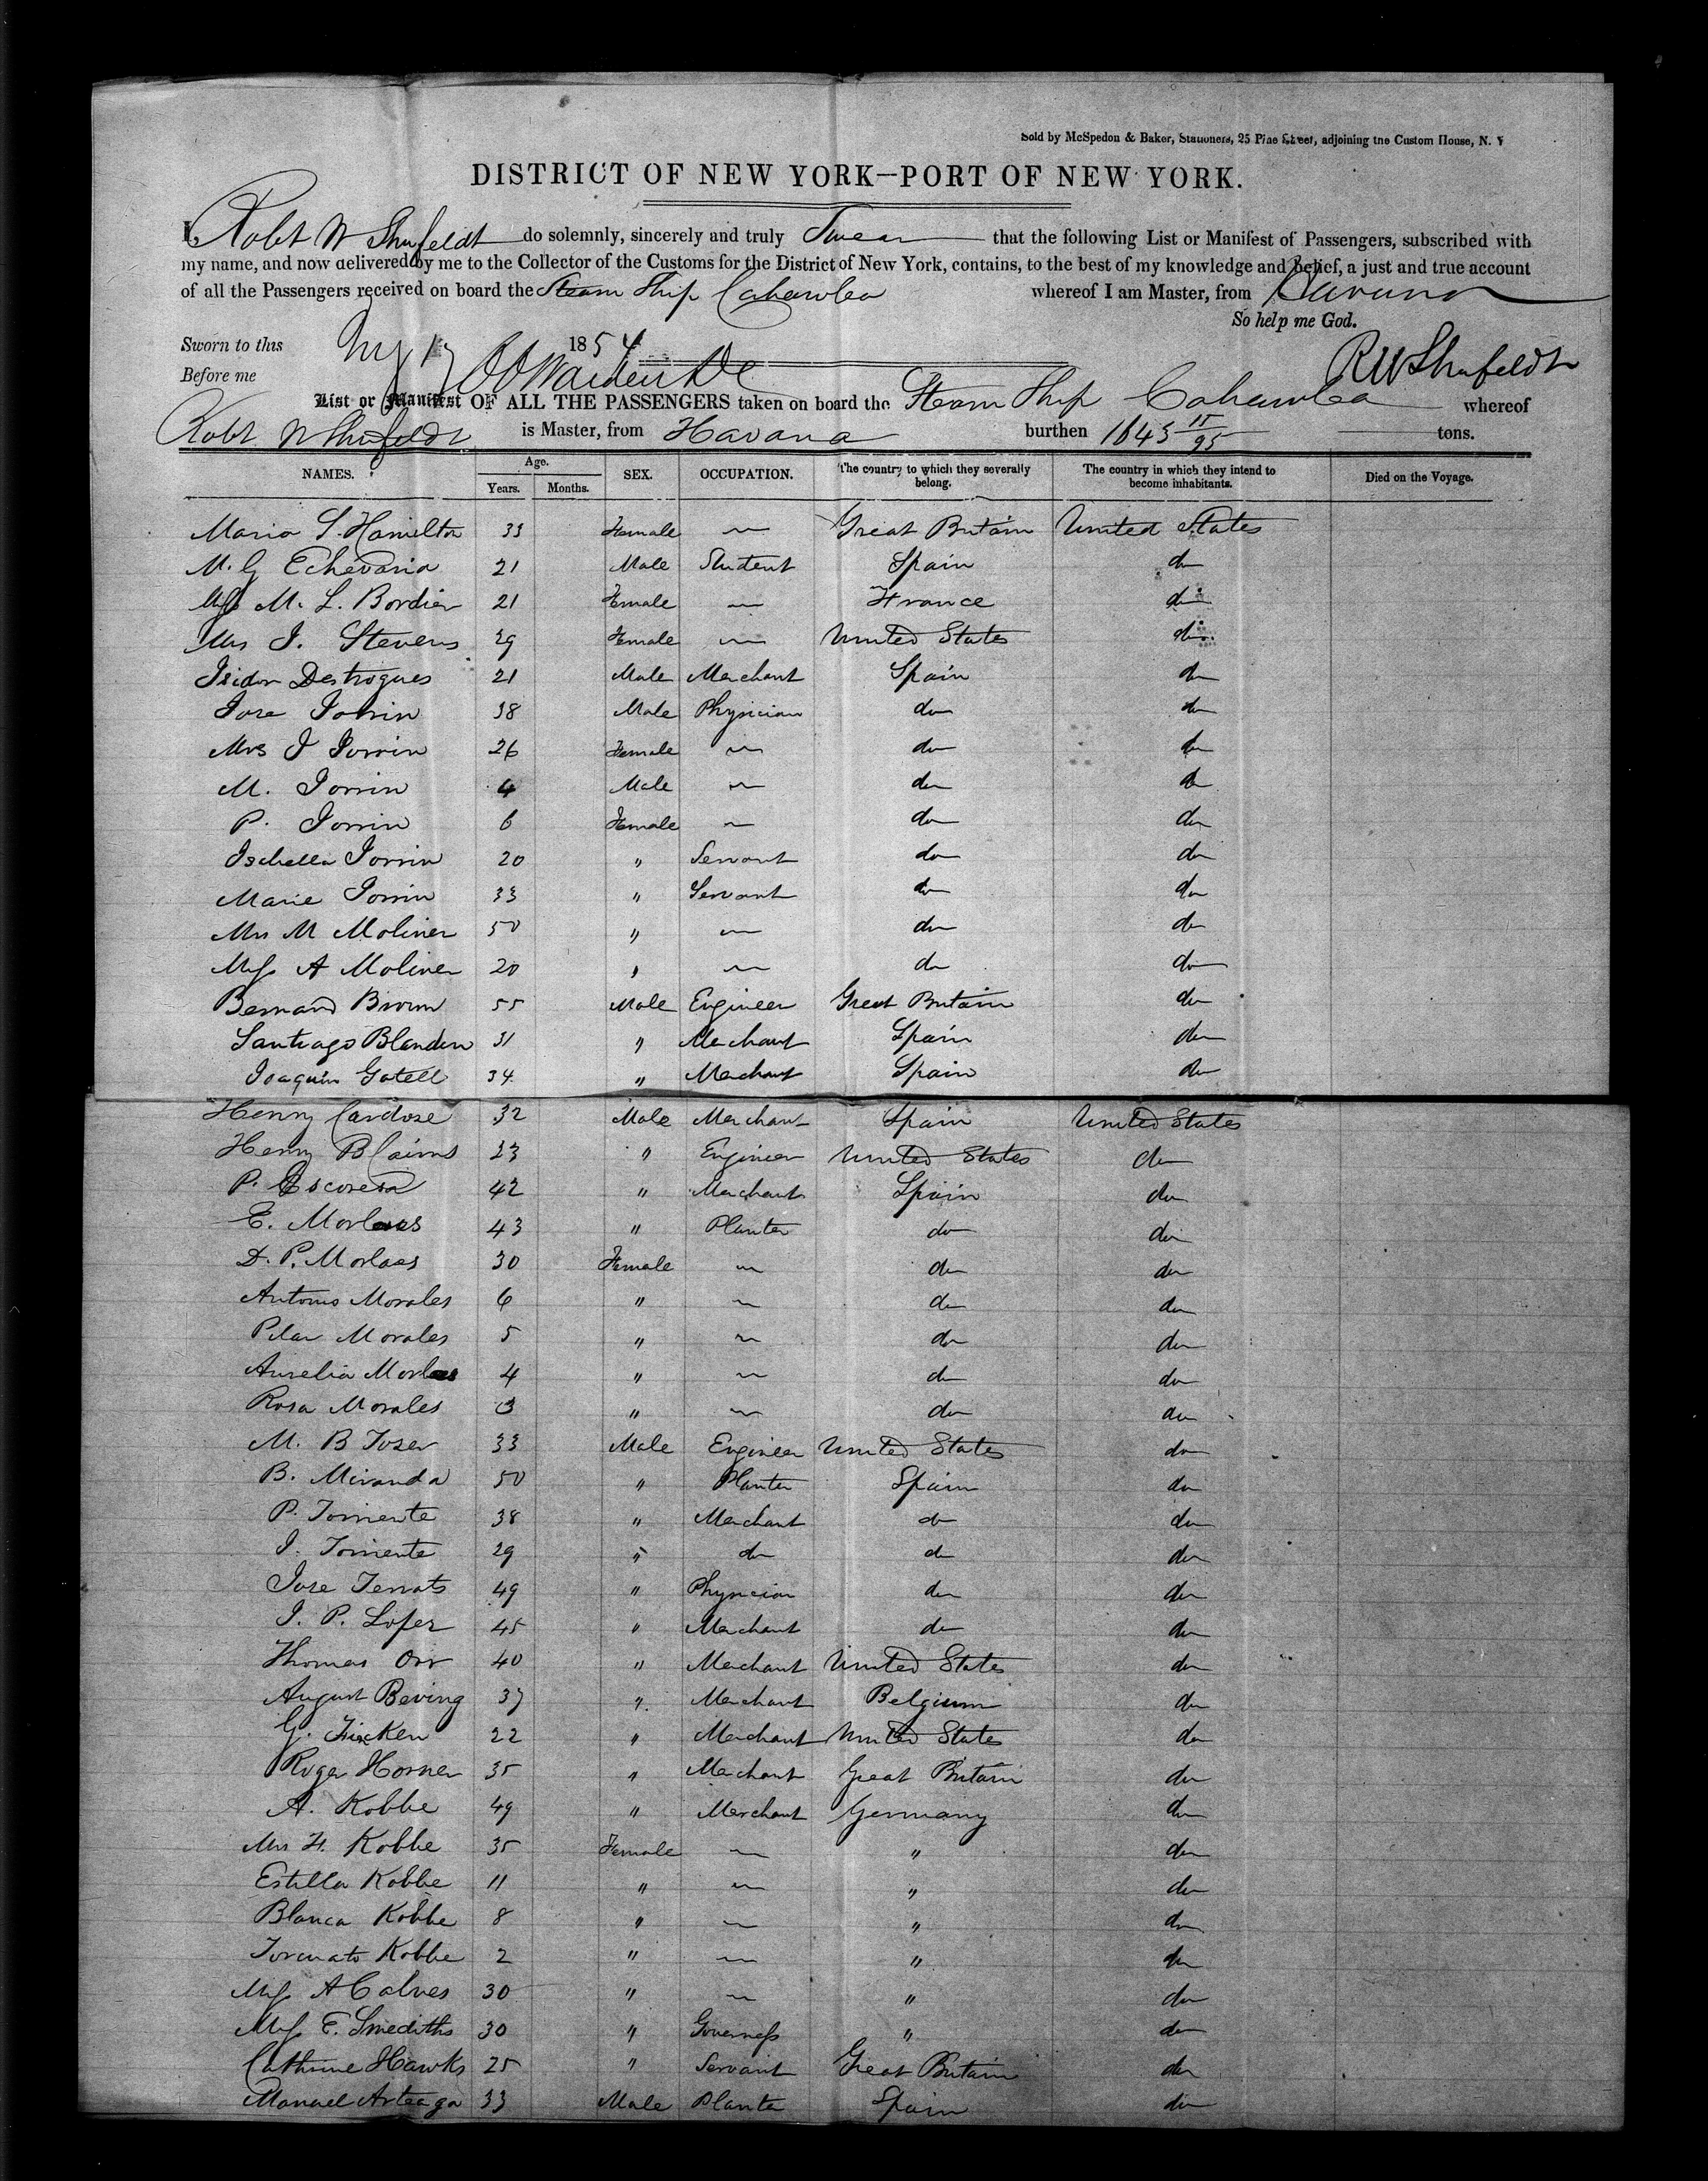 Sold by McSpedon & Baker, Stationers, 25 Pine Street, adjoining the Custom House, N. Y
DISTRICT OF NEW YORK—PORT OF NEW YORK.
I, Robt W Shufeldt do solemnly, sincerely and truly Swear that the following List or Manifest of Passengers, subscribed with
my name, and now delivered by me to the Collector of the Customs for the District of New York, contains, to the best of my knowledge and belief, a just and true account
of all the Passengers received on board the Steam Ship Cahawba whereof I am Master, from Havana
So help me God.
Sworn to this 17 1854
Before me RW Shufeldt
List or Manifest OF ALL THE PASSENGERS taken on board the Steam Ship Cahawba whereof
Robt W Shufeldt is Master, from Havana burthen 1643 15/95 tons.
NAMES. Age. Years. Months. SEX. OCCUPATION. The country to which they severally belong. The country in which they intend to become inhabitants. Died on the Voyage.
Maria S. Hamilton 33 Female — Great Britain United States
M. G Echevaria 21 Male Student Spain do
Miss M. L. Bordier 21 Female — France do
Mrs J. Stevens 29 Female — United States do
Isidor Destrogues 21 Male Merchant Spain do
Jose Jorrin 38 Male Physician do do
Mrs J Jorrin 26 Female — do do
M. Jorrin 4 Male — do do
P. Jorrin 6 Female — do do
Isabella Jorrin 20 " Servant do do
Marie Jorrin 33 " Servant do do
Mrs M Moliner 50 " — do do
Miss A Moliner 20 " — do do
Bernard Brown 55 Male Engineer Great Britain do
Santiago Blandin 31 " Merchant Spain do
Joaquin Gatell 34 " Merchant Spain do
Henry Cardose 32 Male Merchant Spain United States
Henry Blaims 23 " Engineer United States do
P. 42 " Merchant Spain do
E. Morlaes 43 " Planter do do
D. P. Morlaes 30 Female — do do
Antonio Morales 6 " — do do
Pilar Morales 5 " — do do
Aurelia Morlaes 4 " — do do
Rosa Morales 3 " — do do
M. B Tozer 33 Male Engineer United States do
B. Miranda 50 " Planter Spain do
P. Torriente 38 " Merchant do do
J. Torriente 29 " do do do
Jose Terrats 49 " Physician do do
J. P. Lopez 45 " Merchant do do
Thomas Orr 40 " Merchant United States do
August Beving 37 " Merchant Belgium do
G. Ficken 22 " Merchant United States do
Roger Horner 35 " Merchant Great Britain do
A. Kobbe 49 " Merchant Germany do
Mrs H. Kobbe 35 Female — " do
Estella Kobbe 11 " — " do
Blanca Kobbe 8 " — " do
Torcuato Kobbe 2 " — " do
Miss A Calves 30 " — " do
Miss E. Smediths 30 " Governess " do
Cathrine Hawks 25 " Servant Great Britain do
Manuel Arteaga 33 Male Planter Spain do